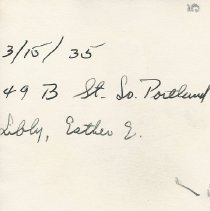 3/15/35
49 B St. So. Portland
Libby, Esther E.